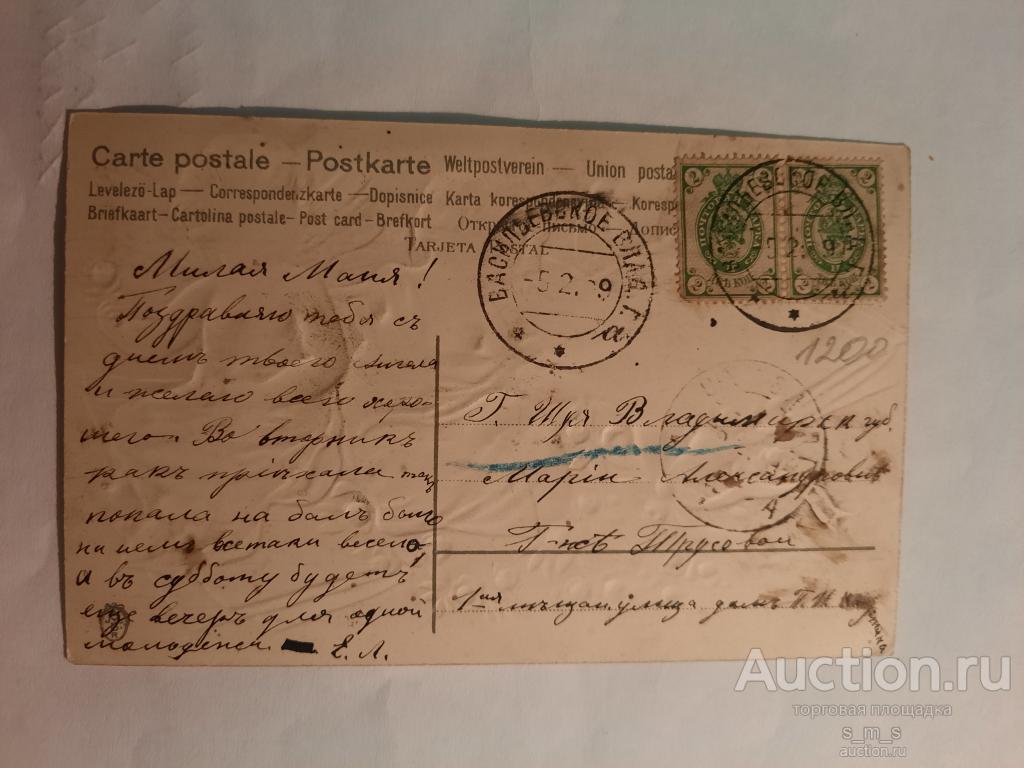 Carte postale — Postkarte Weltpostverein — Union posta
Levelezö-Lap — Correspondenzkarte — Dopisnice Karta korespondencyjna — Koresp
Briefkaart — Cartolina postale - Post card - Brefkort Открытое Письмо Dopis
TARJETA POSTAL
ВАСИЛЬЕВСКОЕ ВЛАД. Г.
-5.2.09
а
2 2
2 2
1200
Милая Маня!
Поздравляю тебя съ
днемъ твоего ангела
и желаю всего хоро-
шего. Во вторникъ
какъ пріѣхала такъ
попала на балъ было
на немъ всетаки весело,
а въ субботу будетъ
еще вечеръ для одной
молодежи Е. Л.
Г. Шуя Владимирск губ.
Маріи Александровнѣ
Г-жѣ Трусовой
1-ая мѣщан. улица домъ
4
Auction.ru
торговая площадка
s_m_s
auction.ru